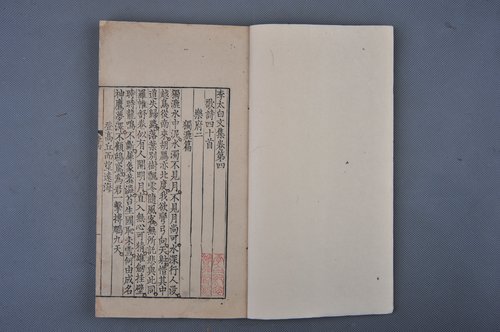 李太白文集卷第四
歌詩四十首
樂府二
獨漉篇
獨漉水中泥水濁不見月不見月尚可水深行人沒
越鳥從南來胡鷹亦北度我欲彎弓向天射惜其中
道失歸路落葉別樹飄零隨風客無所託悲與此同
羅帷舒卷似有人開明月直入無心可猜雄劍挂壁
時時龍鳴不斷犀象繡澀苔生國恥未雪何由成名
神鷹夢澤不顧鴟鳶為君一擊搏鵬九天
登高丘而望遠海